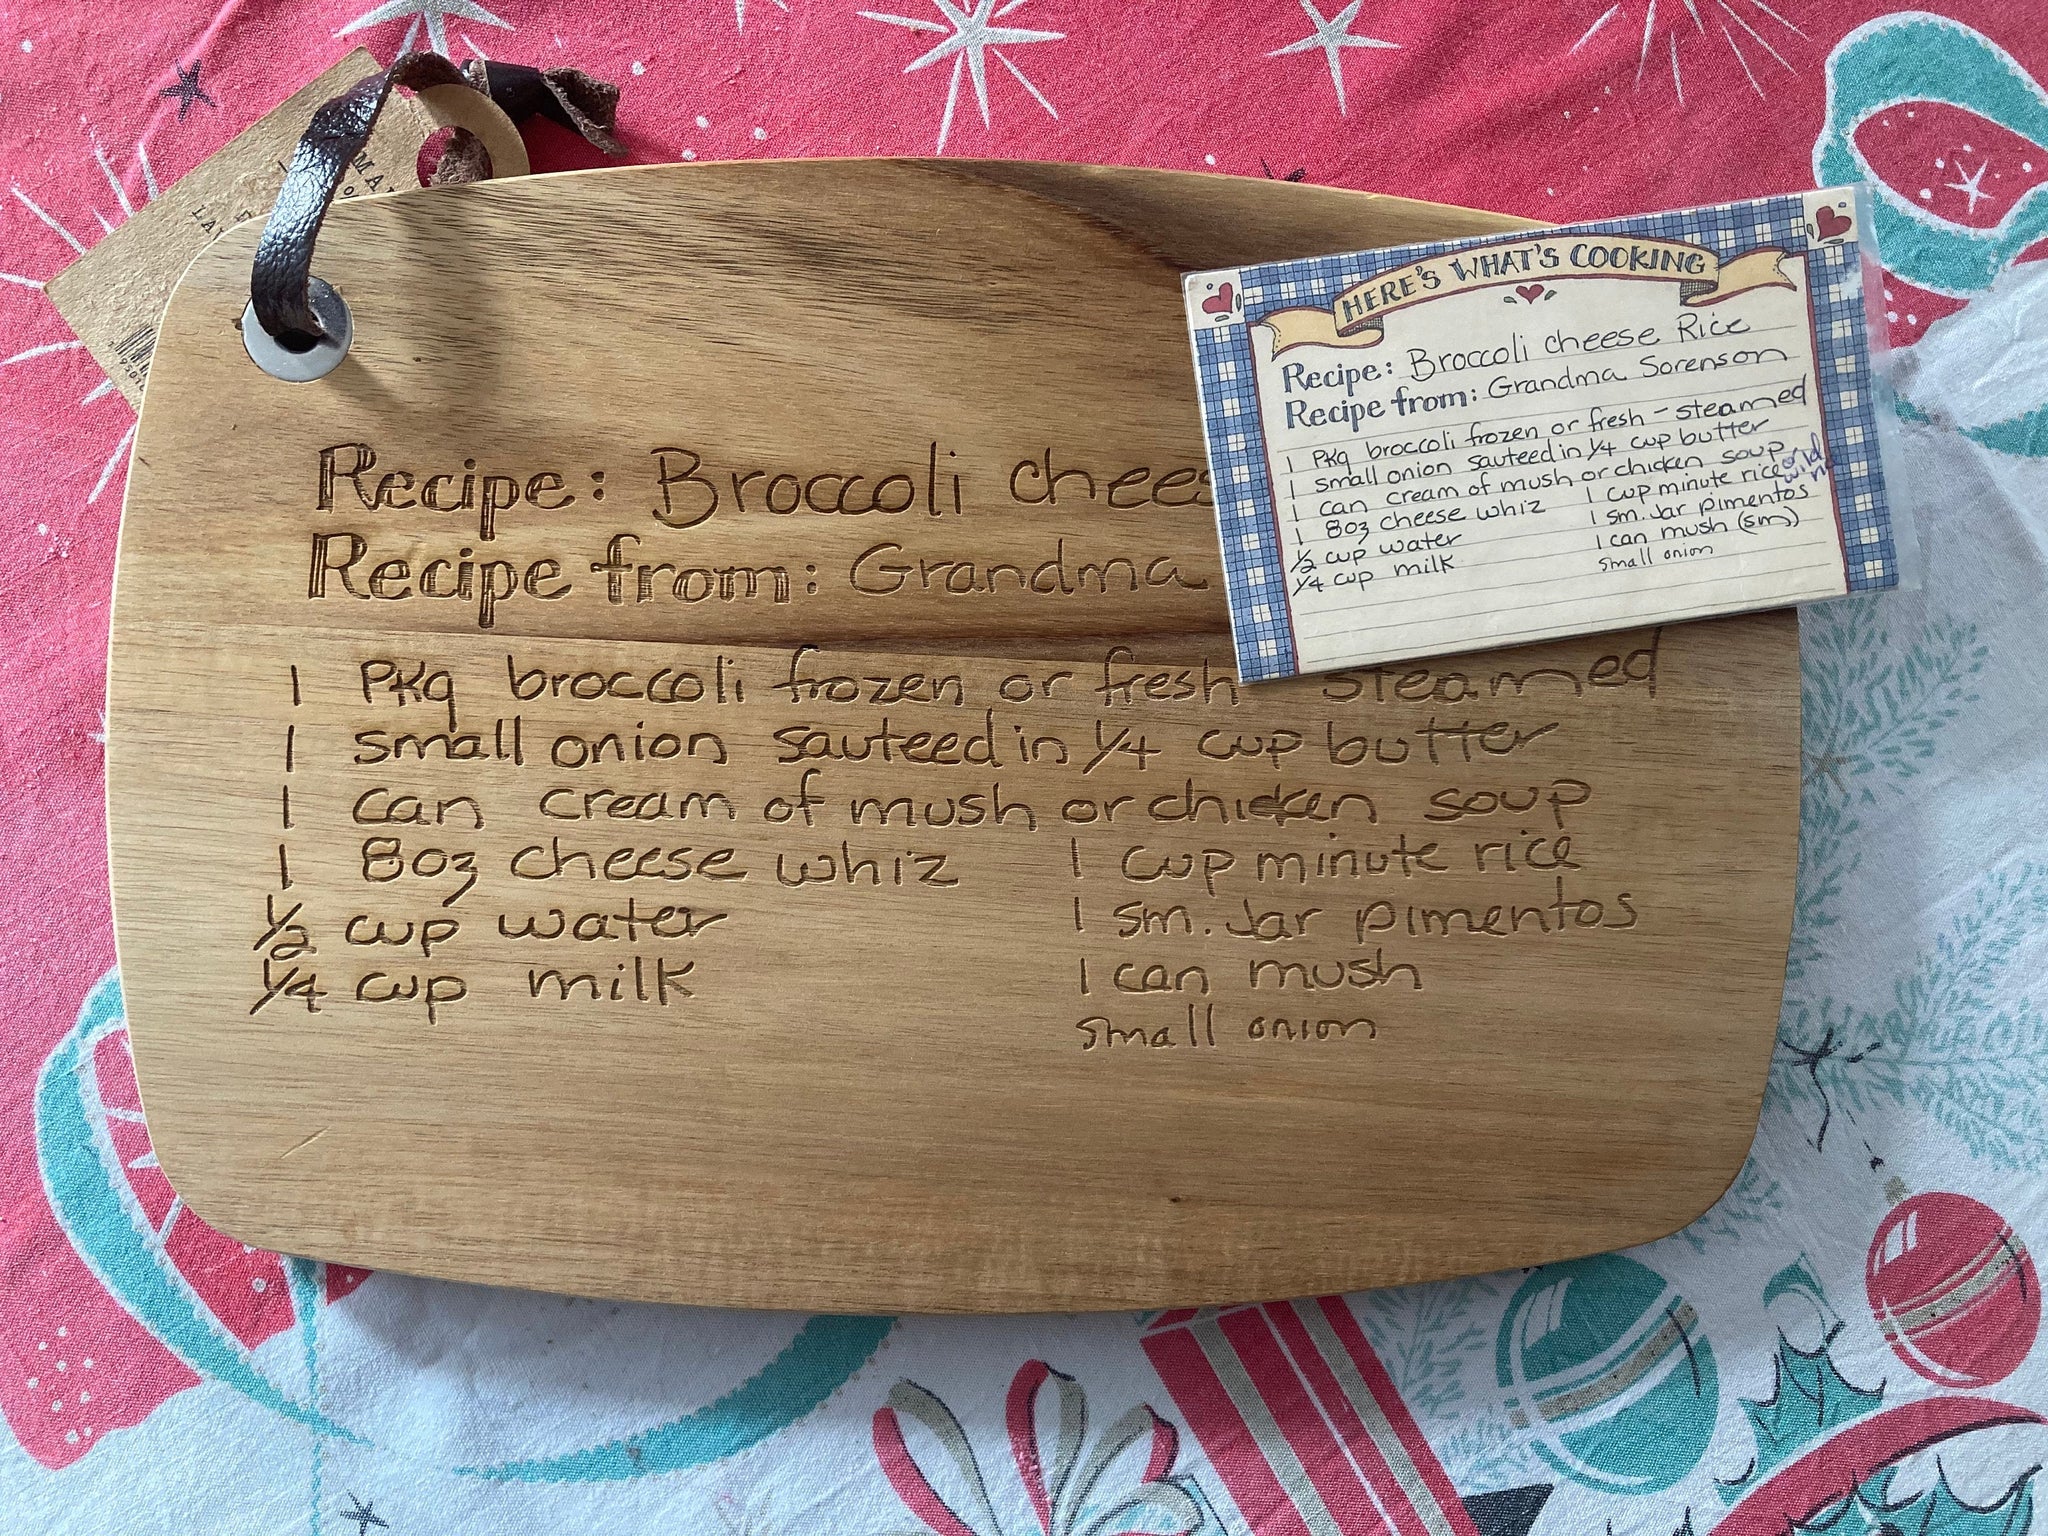 HERE'S WHAT'S COOKING
Recipe: Broccoli cheese Rice
Recipe from: Grandma Sorenson
1 PKg broccoli frozen or fresh - steamed
1 small onion sauteed in 1/4 cup butter
1 can cream of mush or chicken soup
1 8oz cheese whiz 1 cup minute rice or wild
1/2 cup water 1 sm. Jar pimentos
1/4 cup milk 1 can mush (sm)
small onion
Recipe: Broccoli chees
Recipe from: Grandma
1 PKg broccoli frozen or fresh steamed
1 small onion sauteed in 1/4 cup butter
1 can cream of mush or chicken soup
1 8oz cheese whiz 1 cup minute rice
1/2 cup water 1 sm. Jar pimentos
1/4 cup milk 1 can mush
small onion